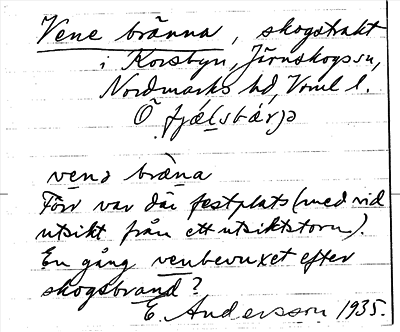 Vene bränna, skogstrakt
i Korsbyn, Järnskogs sn,
Nordmarks hd, Vrml l.
Ö fjǽlsbǽrjə
venə bræna
Förr var där festplats (med vid
utsikt från ett utsiktstorn).
En gång venbevuxet efter
skogsbrand?
E. Andersson 1935.